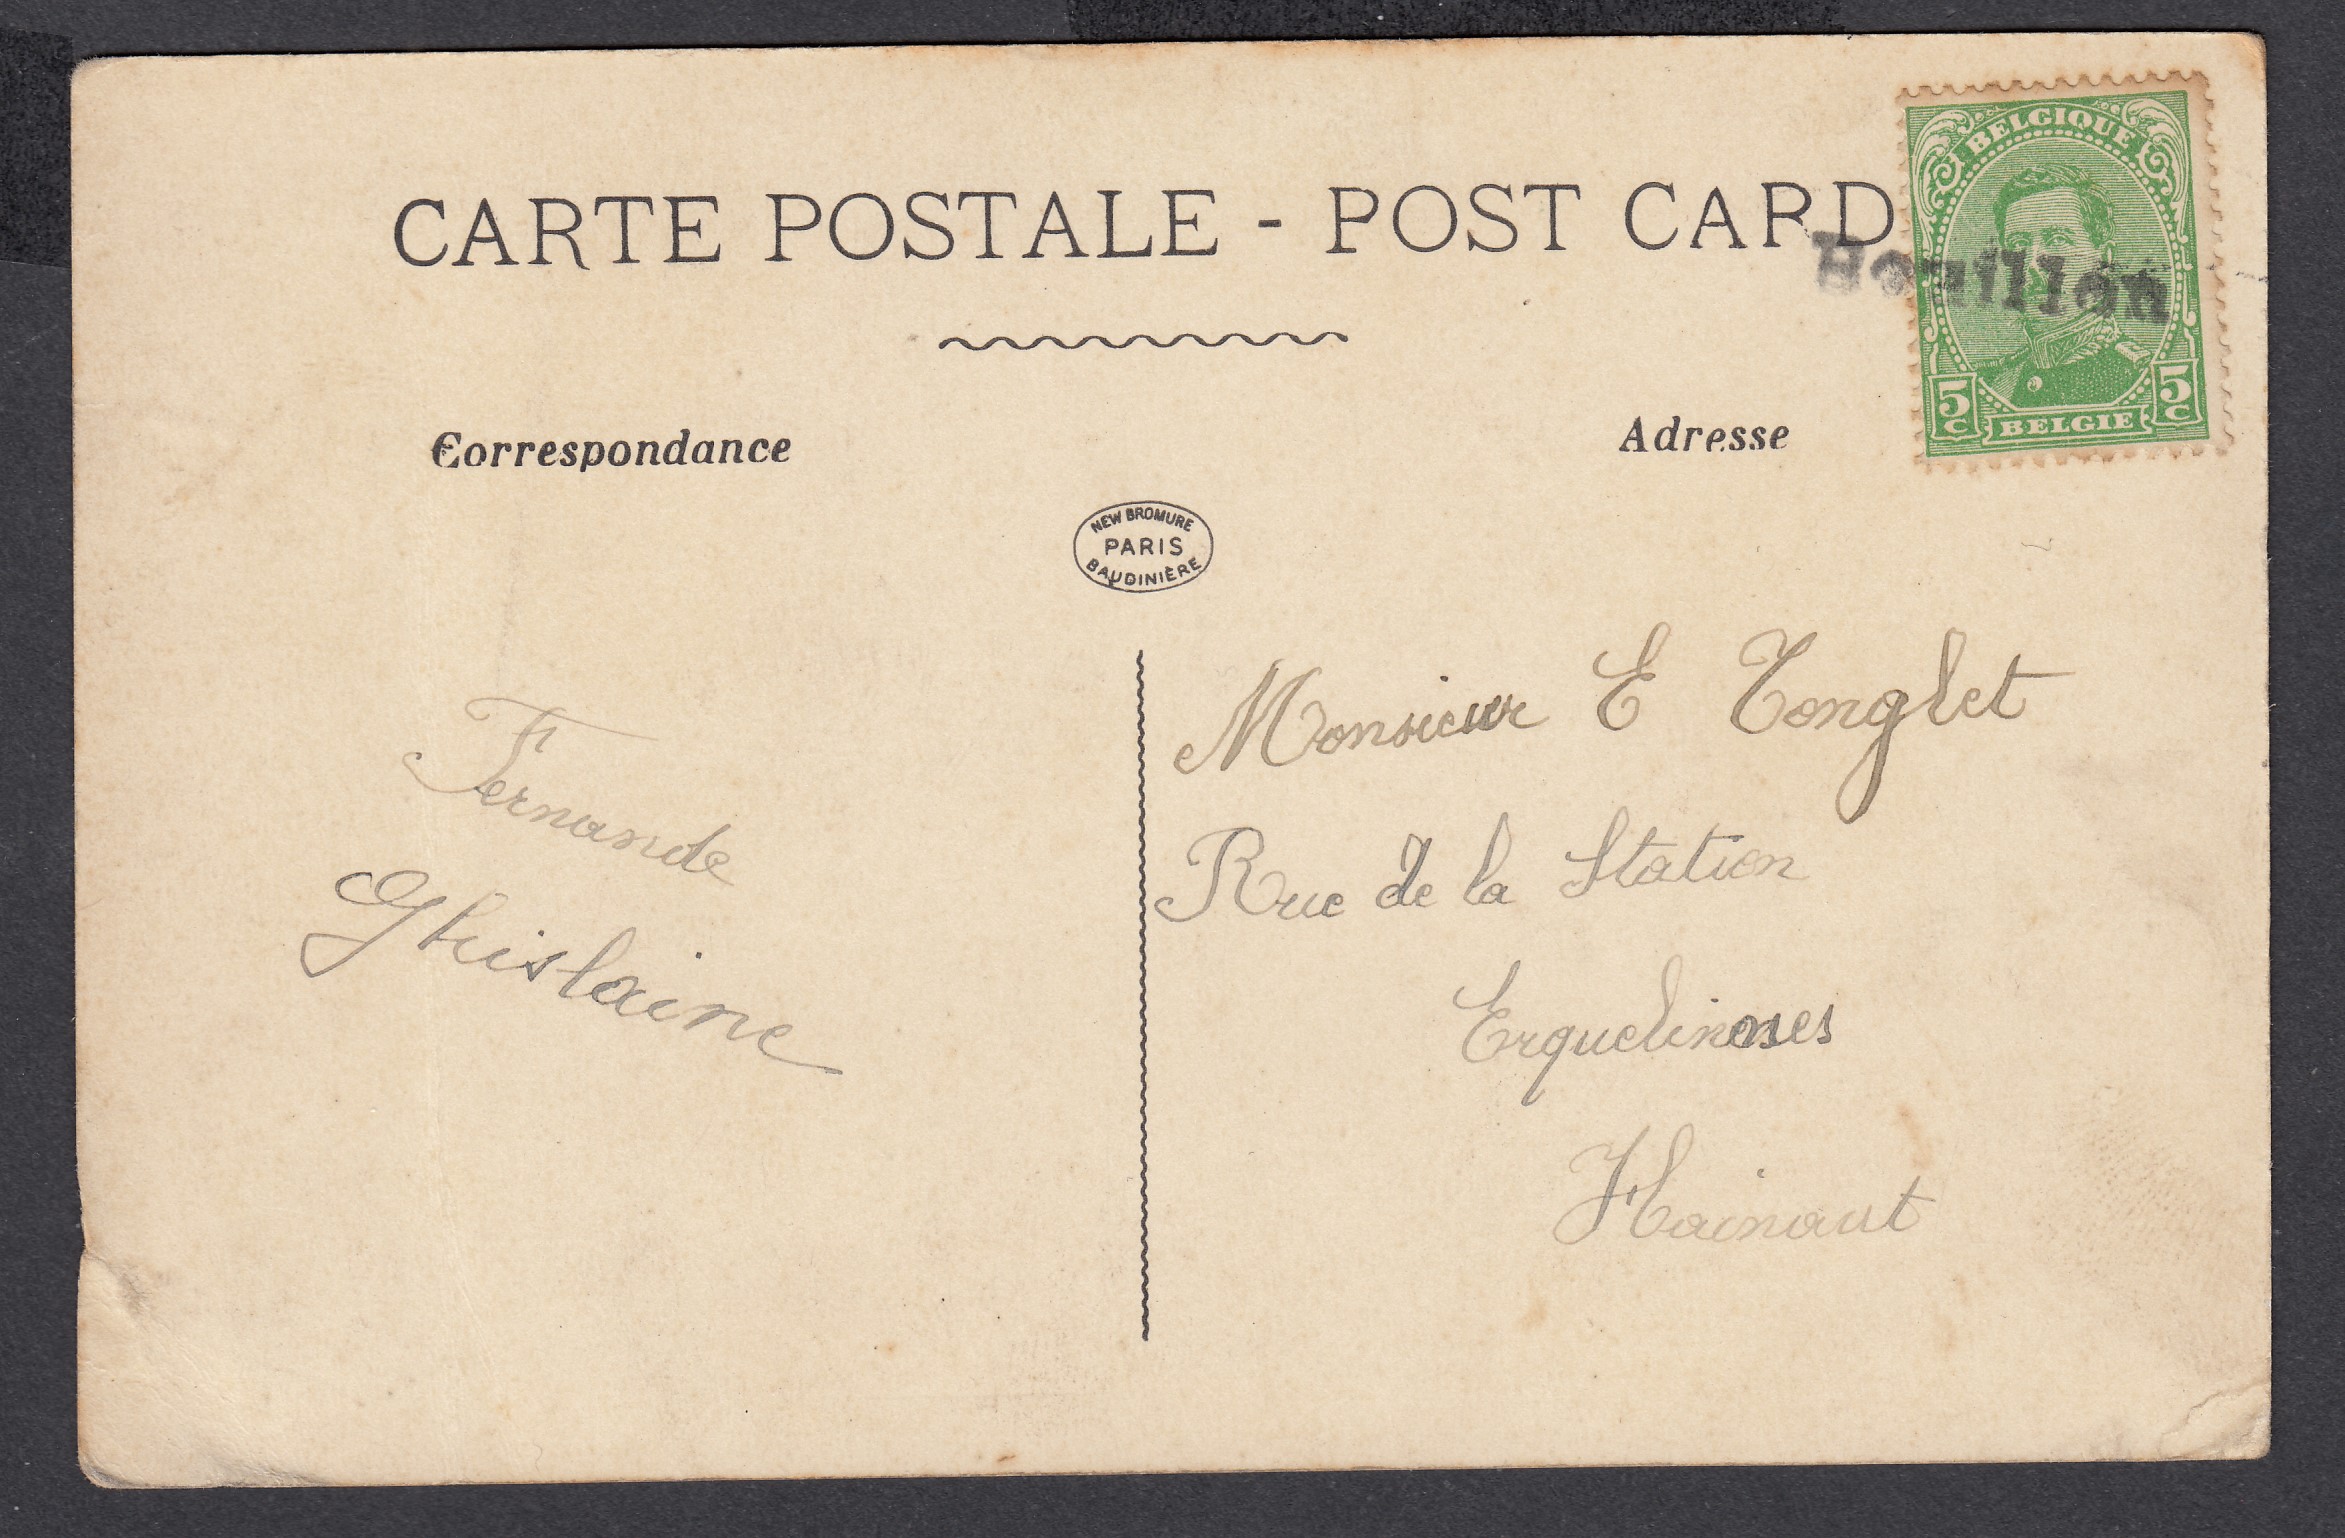 CARTE POSTALE - POST CARD
BELGIQUE
Bouillon
5 C
5 C
BELGIE
Correspondance
Adresse
NEW BROMURE
PARIS
BAUDINIÈRE
Monsieur E Tonglet
Rue de la Station
Erquelinnes
Hainaut
Fernande
Ghislaine